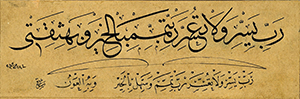 رب يسر ولا تعسر رب تمم بالخير وبه ثقتي
رب يسر ولا تعسر رب تمم وسهل بالخير وبه العون